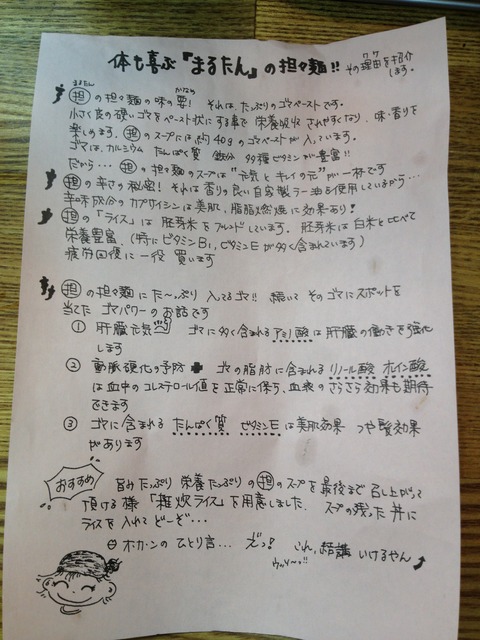 体も喜ぶ『まるたん』の担々麺!! その理由を紹介
ワケ
します。
まるたん かなめ
担の担々麺の味の要! それは、たっぷりのゴマペーストです。
小さく皮の硬いゴマをペースト状にする事で栄養吸収されやすくなり、味・香りを
楽しめます。担のスープには約40gのゴマペーストが入っています。
ゴマは、カルシウム たんぱく質 鉄分 各種ビタミンが豊富!!
だから… 担の担々麺のスープは"元気とキレイの元"が一杯です
担の辛さの秘密! それは香りの良い自家製ラー油を使用しているから…
辛味成分のカプサイシンは美肌、脂肪燃焼に効果あり!
担の「ライス」は胚芽米をブレンドしています。胚芽米は白米と比べて
栄養豊富。(特にビタミンB1,ビタミンEが多く含まれています)
疲労回復に一役 買います
担の担々麺にた〜っぷり入ってるゴマ!! 続いて そのゴマにスポットを
当てた ゴマパワーのお話です
① 肝臓元気 ゴマに多く含まれるアミノ酸は肝臓の働きを強化
します
② 動脈硬化の予防 ゴマの脂肪に含まれるリノール酸 オレイン酸
は血中のコレステロール値を正常に保ち、血液のさらさら効果も期待
できます
③ ゴマに含まれる たんぱく質 ビタミンEは美肌効果 つや髪効果
があります
おすすめ 旨みたっぷり 栄養たっぷりの担のスープを最後まで召し上がって
頂ける様「雑炊ライス」を用意しました。スープの残った丼に
ライスを入れて ど〜ぞ…
のひとり言… えっ! これ、結構 いけるやん
ウッソ〜!!